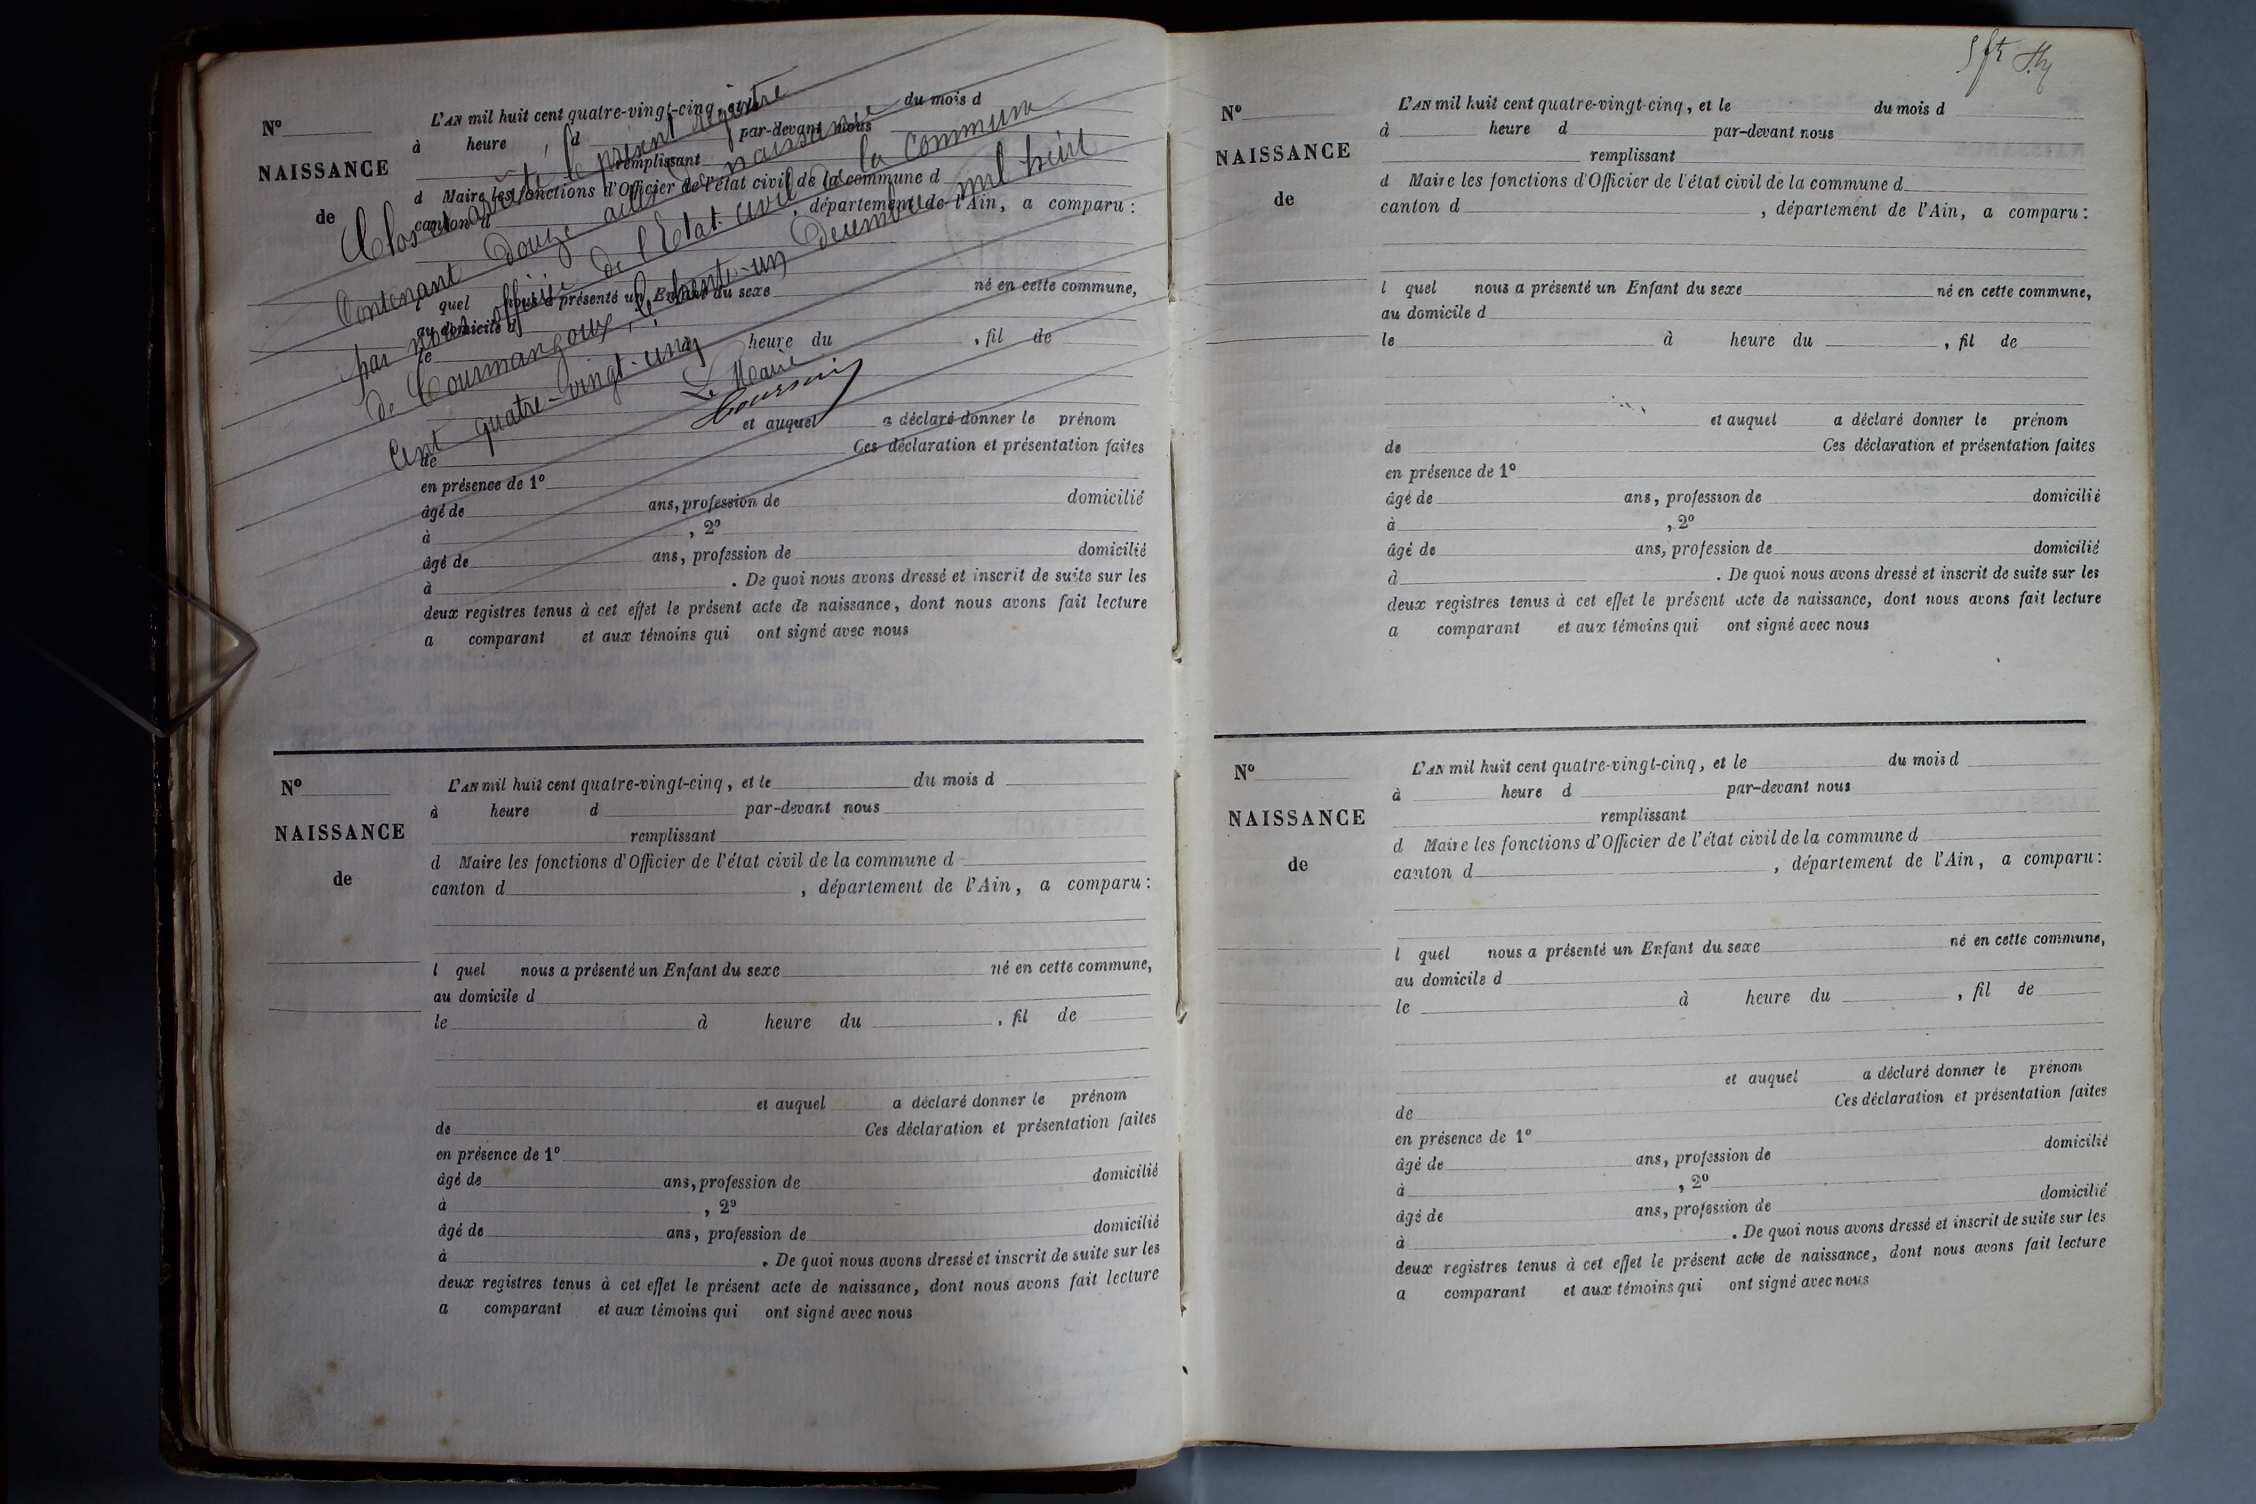 Clos et arrêté le présent registre
contenant douze actes de naissance
par nous officier de l'Etat-civil de la commune
de Courmangoux, le trente-un Décembre mil huit
cent quatre-vingt-cinq
Le Maire
Nº
NAISSANCE
de
L'AN mil huit cent quatre-vingt-cinq, et le du mois d
à heure d par-devant nous
remplissant
d Maire les fonctions d'Officier de l'état civil de la commune d
canton d , département de l'Ain, a comparu :
l quel nous a présenté un Enfant du sexe né en cette commune,
au domicile d
le à heure du , fil de
et auquel a déclaré donner le prénom
de Ces déclaration et présentation faites
en présence de 1º
âgé de ans, profession de domicilié
à , 2º
âgé de ans, profession de domicilié
à . De quoi nous avons dressé et inscrit de suite sur les
deux registres tenus à cet effet le présent acte de naissance, dont nous avons fait lecture
a comparant et aux témoins qui ont signé avec nous
Nº
NAISSANCE
de
L'AN mil huit cent quatre-vingt-cinq, et le du mois d
à heure d par-devant nous
remplissant
d Maire les fonctions d'Officier de l'état civil de la commune d
canton d , département de l'Ain, a comparu :
l quel nous a présenté un Enfant du sexe né en cette commune,
au domicile d
le à heure du , fil de
et auquel a déclaré donner le prénom
de Ces déclaration et présentation faites
en présence de 1º
âgé de ans, profession de domicilié
à , 2º
âgé de ans, profession de domicilié
à . De quoi nous avons dressé et inscrit de suite sur les
deux registres tenus à cet effet le présent acte de naissance, dont nous avons fait lecture
a comparant et aux témoins qui ont signé avec nous
Nº
NAISSANCE
de
L'AN mil huit cent quatre-vingt-cinq, et le du mois d
à heure d par-devant nous
remplissant
d Maire les fonctions d'Officier de l'état civil de la commune d
canton d , département de l'Ain, a comparu :
l quel nous a présenté un Enfant du sexe né en cette commune,
au domicile d
le à heure du , fil de
et auquel a déclaré donner le prénom
de Ces déclaration et présentation faites
en présence de 1º
âgé de ans, profession de domicilié
à , 2º
âgé de ans, profession de domicilié
à . De quoi nous avons dressé et inscrit de suite sur les
deux registres tenus à cet effet le présent acte de naissance, dont nous avons fait lecture
a comparant et aux témoins qui ont signé avec nous
Nº
NAISSANCE
de
L'AN mil huit cent quatre-vingt-cinq, et le du mois d
à heure d par-devant nous
remplissant
d Maire les fonctions d'Officier de l'état civil de la commune d
canton d , département de l'Ain, a comparu :
l quel nous a présenté un Enfant du sexe né en cette commune,
au domicile d
le à heure du , fil de
et auquel a déclaré donner le prénom
de Ces déclaration et présentation faites
en présence de 1º
âgé de ans, profession de domicilié
à , 2º
âgé de ans, profession de domicilié
à . De quoi nous avons dressé et inscrit de suite sur les
deux registres tenus à cet effet le présent acte de naissance, dont nous avons fait lecture
a comparant et aux témoins qui ont signé avec nous